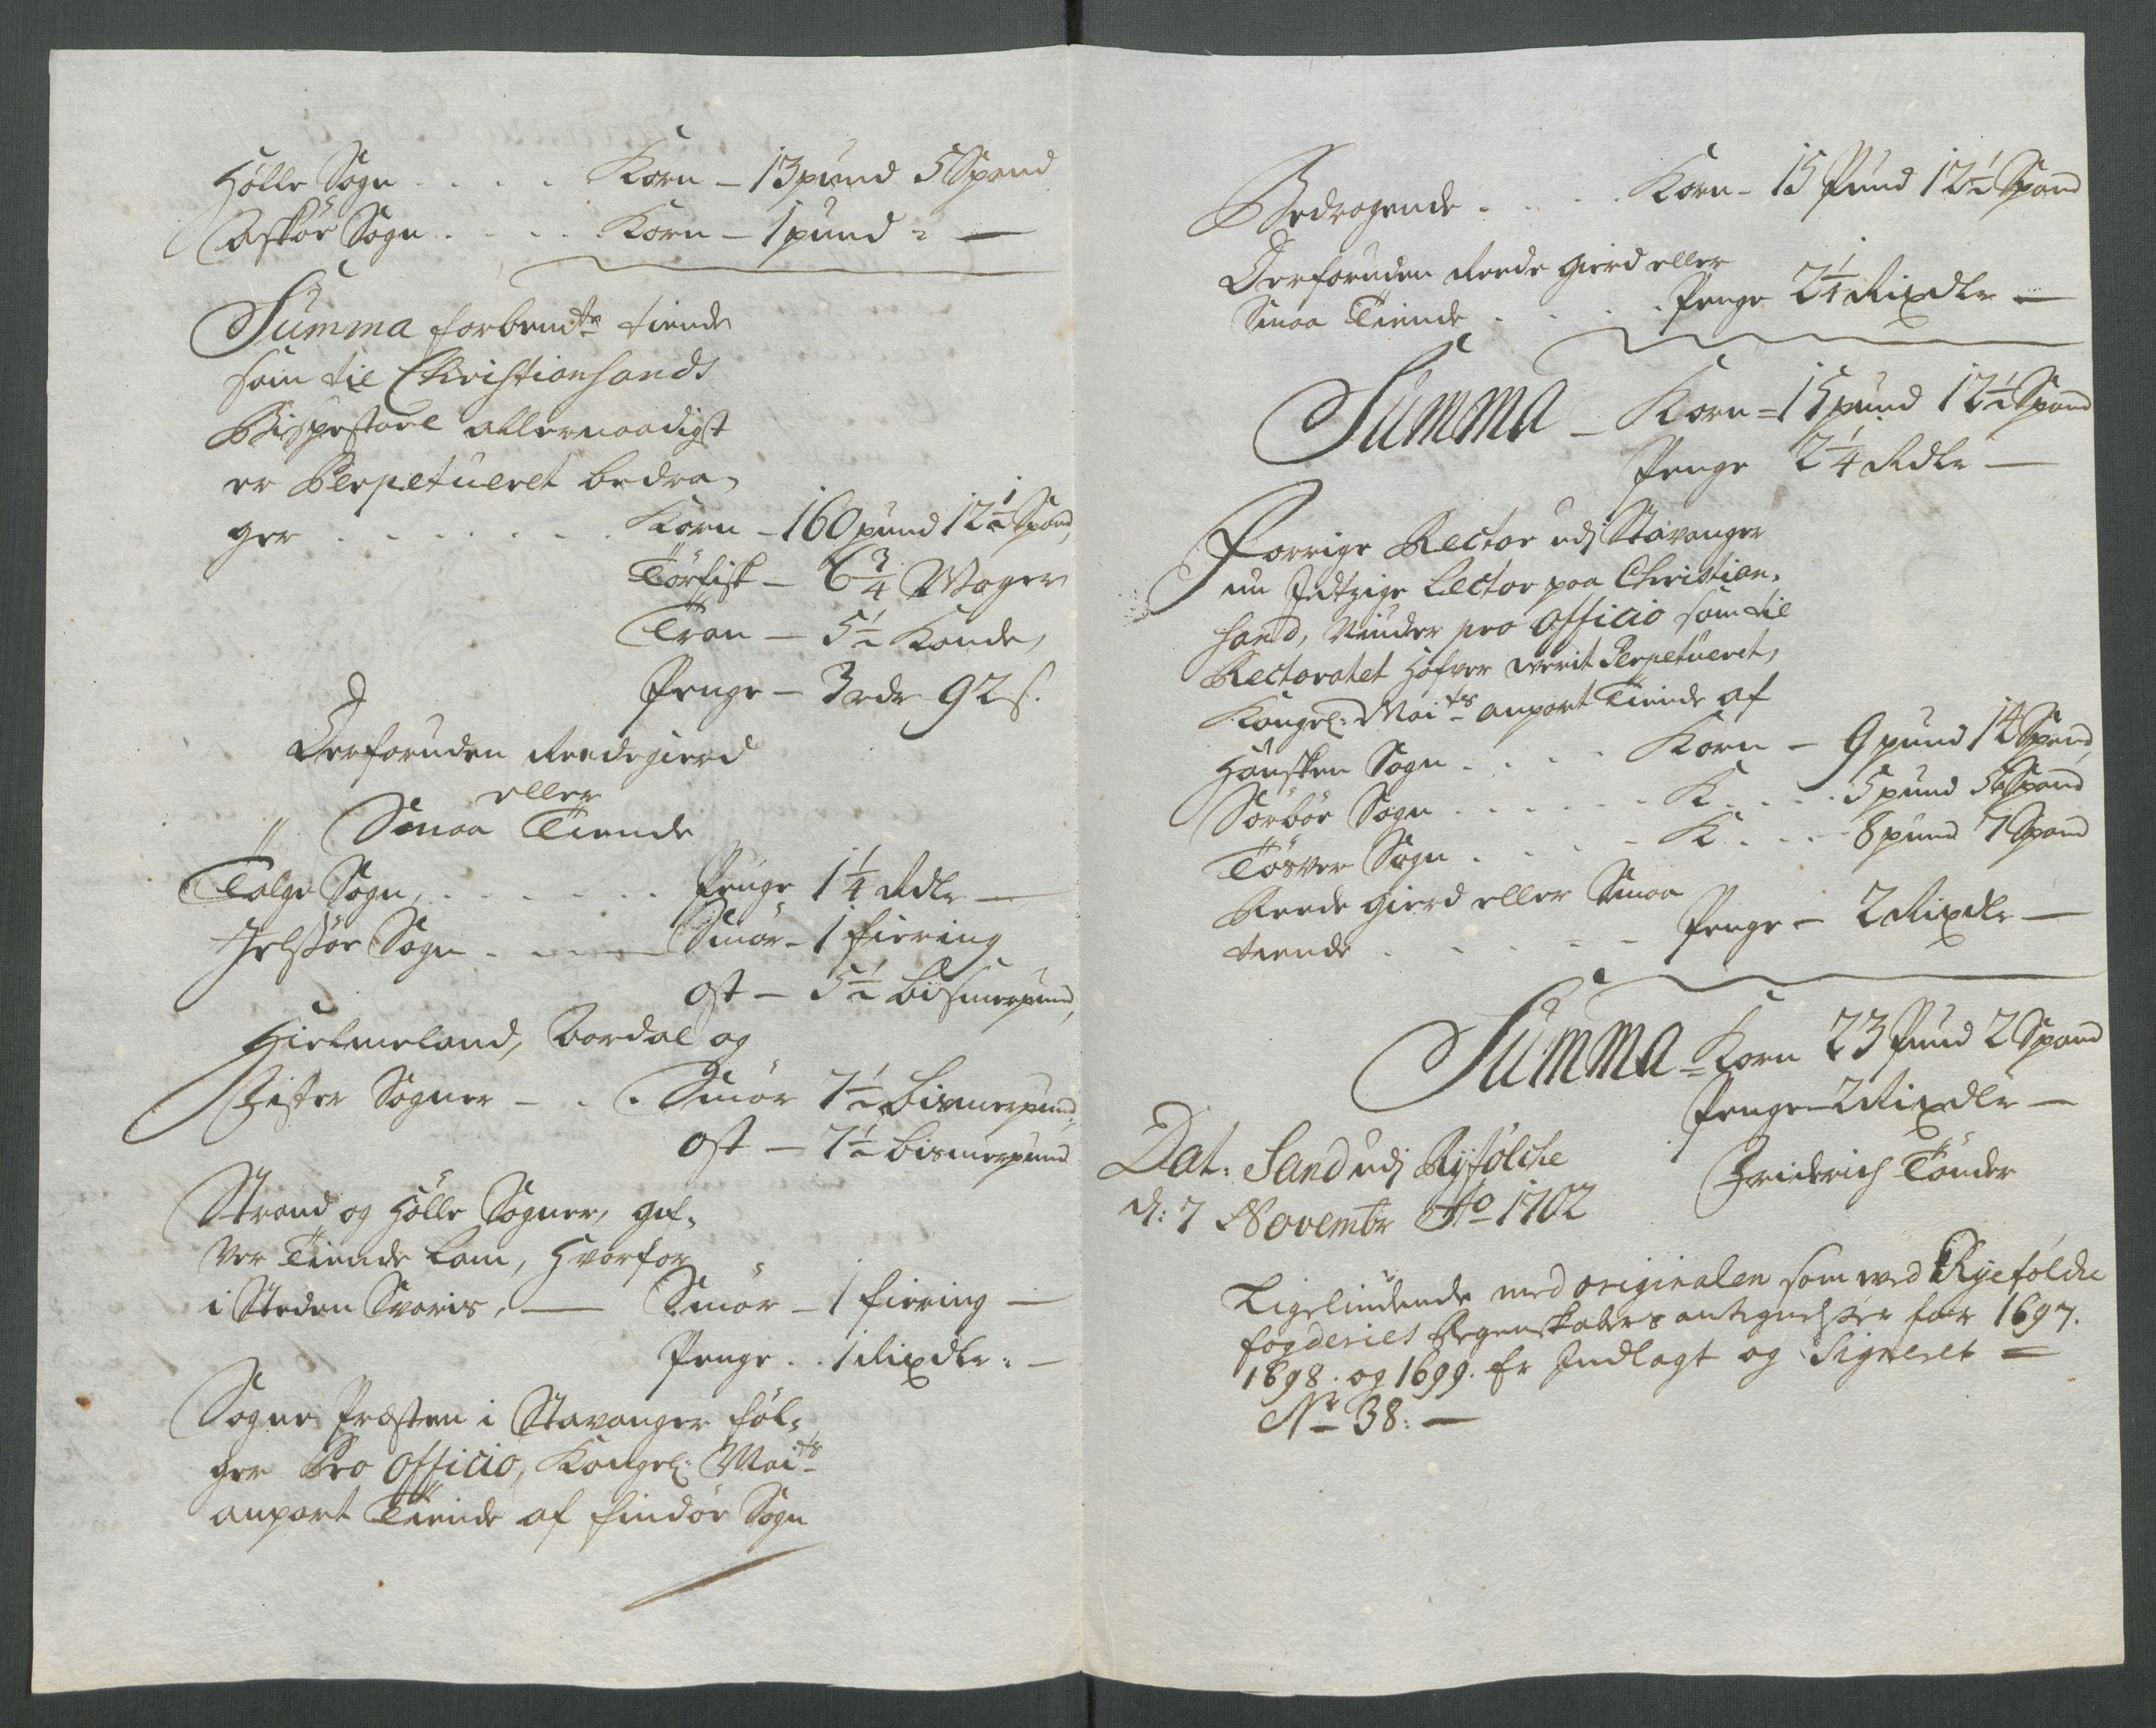 Hölle Sogn . . . . Korn – 13 pund 5 Spand
Askör Sogn . . . . Korn – 1 pund " —
Summa forbemte tiende
som til Christiansands
Bispestoel allernaadigst
er Perpetueret bedra-
ger . . . . . . . Korn – 160 pund 12½ Spand,
Törfisk – 6¾ Woger
Tran – 5½ Kande,
Penge – 3 rdr 92 s.
Derforuden Reedegierd
eller
Smaa Tiende
Talge Sogn, . . . . . . Penge 1¼ Rdlr —
Jelsöe Sogn . . . Smör – 1 fiering
ost – 5½ bismerpund,
Hielmeland, Aardal og
Fister Sogner – . . Smör 7½ bismerpund,
ost – 7½ bismerpund
Strand og Hölle Sogner, gif-
ver Tiende Lam, Hvorfor
i Steden Svaris, — Smör – 1 fiering —
Penge . . 1 Rixdlr: —
Sogne Præsten i Stavanger föl-
ger Pro Officio, Kongel: Maits
anpart Tiende af Findöe Sogn
Bedragende . . . . Korn – 15 Pund 12½ Spand
Derforuden Reede gierd eller
Smaa Tiende . . . . Penge 2¼ Rixdlr —
Summa – Korn = 15 pund 12½ Spand
Penge 2¼ Rdlr —
Forrige Rector udj Stavanger
nu Jdtzige Lector paa Christian-
sand, Niuder pro Officio som til
Rectoratet Hafver verit Perpetueret,
Kongel: Maits anpart Tiende af
Hausken Sogn . . . . Korn – 9 pund 14 Spand,
Sörböe Sogn . . . . . . K . . . . 5 pund 5 Spand
Tösver Sogn . . . . . K . . . . 8 pund 7 Spand
Reede gierd eller Smaa
tiende . . . . . Penge – 2 Rixdlr —
Summa = Korn 23 Pund 2 Spand
Penge – 2 Rixdlr —
Dat: Sand udj Ryfölcke
d: 7 Novembr Ao 1702
Friderich Tönder
Ligelindende med originalen som ved Ryefölcke
fogderies Regenskabers antegnelser for 1697.
1698. og 1699. Er Jndlagt og Signeret =
No 38: —